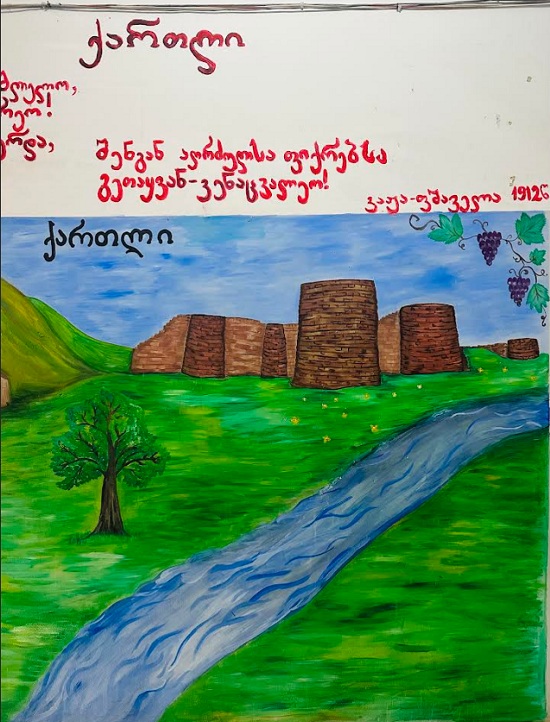 ქართლი
შენგან აღრძულსა ფიქრებსა
გეთაყვან-ვენაცვალეო!
ვაჟა-ფშაველა 1912წ
ქართლი